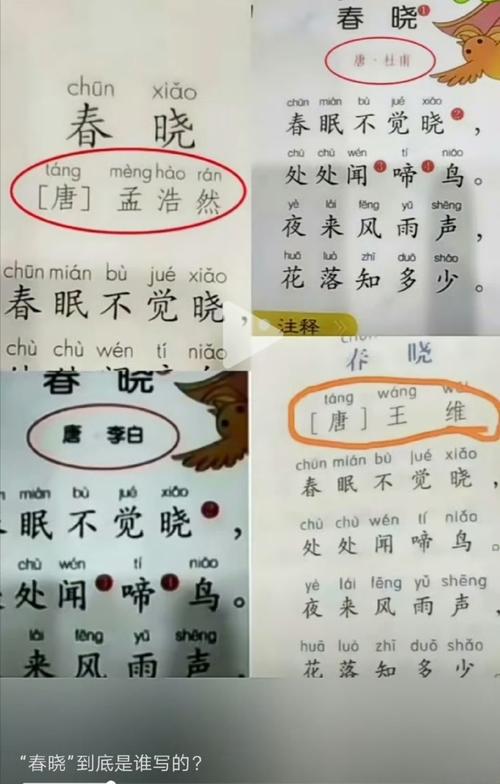 chūn xiǎo
春 晓
táng mèng hào rán
[唐] 孟浩然
chūn mián bù jué xiǎo
春眠不觉晓,
chù chù wén tí niǎo
春晓❶
唐·杜甫
chūn mián bù jué xiǎo
春眠不觉晓❷,
chù chù wén tí niǎo
处处闻❸啼❹鸟。
yè lái fēng yǔ shēng
夜来风雨声,
huā luò zhī duō shǎo
花落知多少。
注释
春 晓
唐·李白
mián bù jué xiǎo
眠不觉晓❷,
chù wén tí niǎo
处闻❸啼❹鸟。
lái fēng yǔ shēng
来风雨声,
春 晓
táng wáng wéi
[唐] 王 维
chūn mián bù jué xiǎo
春眠不觉晓,
chù chù wén tí niǎo
处处闻啼鸟。
yè lái fēng yǔ shēng
夜来风雨声,
huā luò zhī duō shǎo
花落知多少。
“春晓”到底是谁写的?